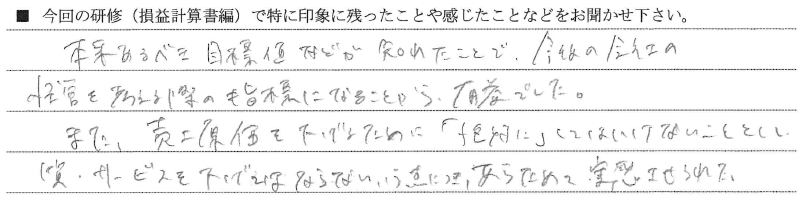 ■ 今回の研修（損益計算書編）で特に印象に残ったことや感じたことなどをお聞かせ下さい。
本来あるべき目標値などが知れたことで、今後の会社の
経営を考える際の指標になることから、有益でした。
また、売上原価を下げるために「絶対に」してはいけないこととし
質・サービスを下げてはならないという点につき、あらためて実感させられた。